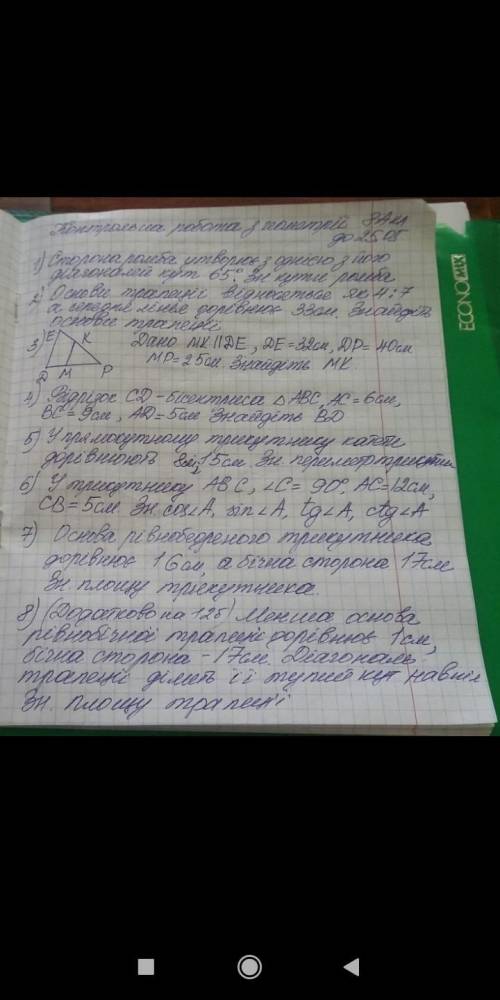 Контрольна робота з геометрії 8А кл
до 25.05
1) Сторона ромба утворює з однією з його
діагоналей кут 65°. Зн кути ромба
2) Основи трапеції відносяться як 4:7
а середня лінія дорівнює 33см. Знайдіть
основи трапеції
3) E K D M P Дано MK || DE, DE = 32см, DP = 40см
MP = 25см. Знайдіть MK
4) Відрізок CD - бісектриса △ ABC, AC = 6см,
BC = 9см, AD = 5см Знайдіть BD
5) У прямокутному трикутнику катети
дорівнюють 8см і 15см. Зн. периметр
6) У трикутнику ABC, ∠C = 90°, AC = 12см,
CB = 5см. Зн. cos∠A, sin∠A, tg∠A, ctg∠A
7) Основа рівнобедреного трикутника
дорівнює 16см, а бічна сторона 17см
Зн. площу трикутника.
8) (Додатково на 12б) Менша основа
рівнобічної трапеції дорівнює 1см,
бічна сторона - 17см. Діагональ
трапеції ділить її тупий кут навпіл
Зн. площу трапеції
ECONOMIX